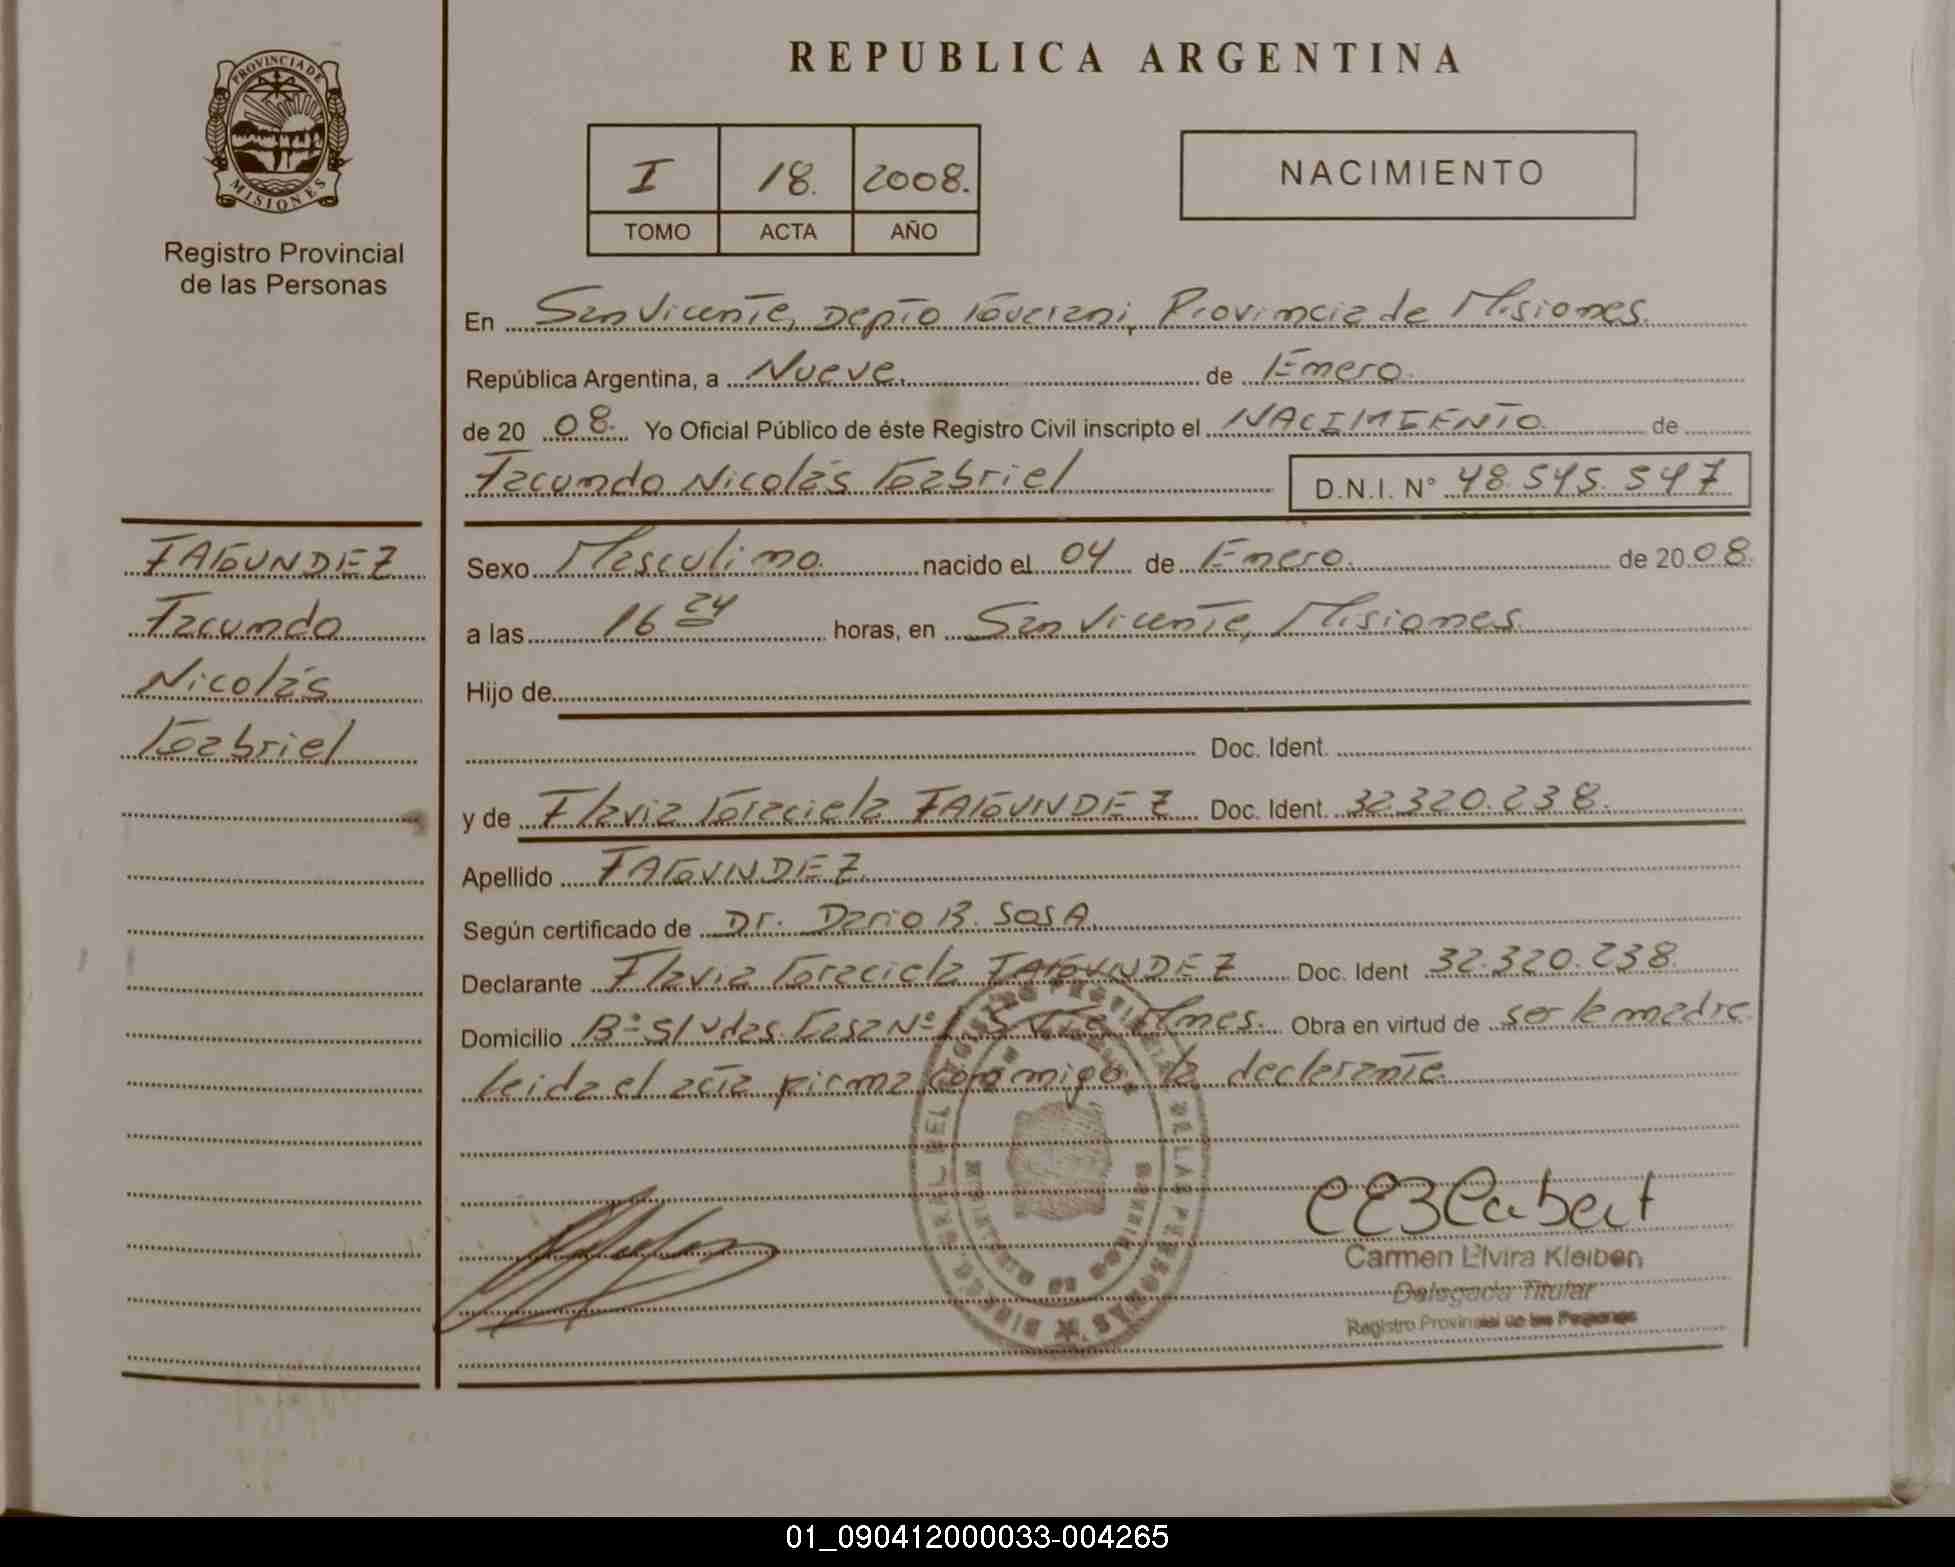 PROVINCIA DE
MISIONES
Registro Provincial
de las Personas
REPUBLICA ARGENTINA
I 18. 2008.
TOMO ACTA AÑO
NACIMIENTO
En San Vicente, Depto Guarani, Provincia de Misiones.
República Argentina, a Nueve. de Enero.
de 20 08. Yo Oficial Público de éste Registro Civil inscripto el NACIMIENTO de
Facundo Nicolás Gabriel D.N.I. N° 48.545.547
FAGUNDEZ
Facundo
Nicolás
Gabriel
Sexo Masculino. nacido el 04 de Enero. de 20 08.
a las 16 24 horas, en San Vicente, Misiones.
Hijo de
Doc. Ident.
y de Flavia Graciela FAGUNDEZ Doc. Ident. 32.320.238.
Apellido FAGUNDEZ.
Según certificado de Dr. Dario B. SOSA.
Declarante Flavia Graciela FAGUNDEZ Doc. Ident 32.320.238.
Domicilio B° S/vdas. Casa N° Mnes. Obra en virtud de ser la madre
leida el acta firma conmigo, la declarante.
DIREC. GRAL. DEL REGISTRO PROVINCIAL DE LAS PERSONAS
MINISTERIO DE GOBIERNO
Carmen Elvira Kleiben
Delegada Titular
Registro Provincial de las Personas
01_090412000033-004265